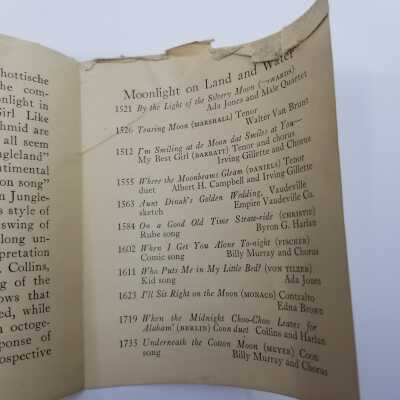 hottische
he com-
onlight in
Girl Like
chmid are
all seem
ngleland"
ntimental
on song"
n Jungle-
s style of
swing of
long un-
rpretation
Collins,
g of the
ows that
ed, while
n octoge-
ponse of
ospective
Moonlight on Land and Water
1521 By the Light of the Silvery Moon (EDWARDS)
Ada Jones and Male Quartet
1526 Tearing Moon (MARSHALL) Tenor
Walter Van Brunt
1512 I'm Smiling at de Moon dat Smiles at You—
My Best Girl (BARRATT) Tenor and chorus
Irving Gillette and Chorus
1555 Where the Moonbeams Gleam (DANIELS) Tenor
duet Albert H. Campbell and Irving Gillette
1563 Aunt Dinah's Golden Wedding, Vaudeville
sketch Empire Vaudeville Co.
1584 On a Good Old Time Straw-ride (CHRISTIE)
Rube song Byron G. Harlan
1602 When I Get You Alone To-night (FISCHER)
Comic song Billy Murray and Chorus
1611 Who Puts Me in My Little Bed? (VON TILZER)
Kid song Ada Jones
1623 I'll Sit Right on the Moon (MONACO) Contralto
Edna Brown
1719 When the Midnight Choo-Choo Leaves for
Alabam' (BERLIN) Coon duet Collins and Harlan
1735 Underneath the Cotton Moon (MEYER) Coon
song Billy Murray and Chorus